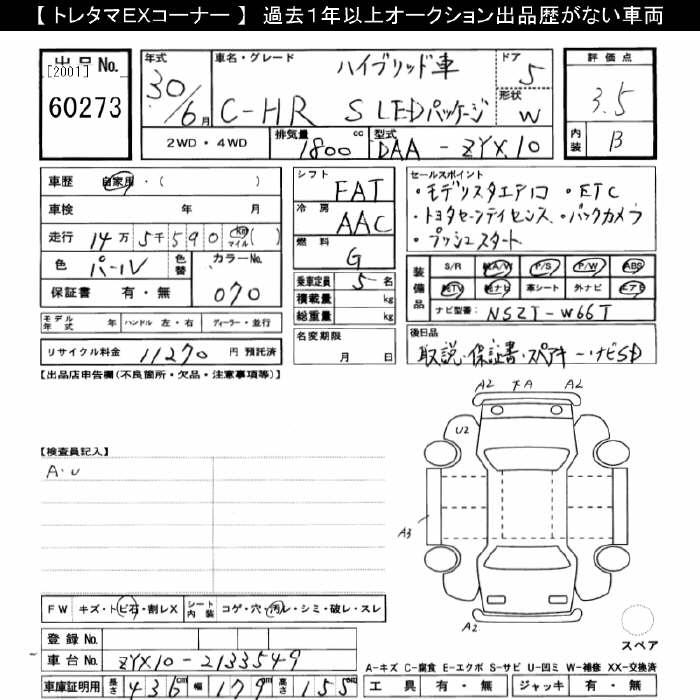 【 トレタマEXコーナー 】 過去１年以上オークション出品歴がない車両
出品No.
[2001]
60273
年式
30/6月
車名・グレード
ハイブリッド車
C-HR S LEDパッケージ
ドア
5
形状
W
評価点
3.5
内装
B
2WD・4WD
排気量
1800 cc
型式
DAA - ZYX10
車歴 自家用・( )
車検 年 月
走行 14万5千590 km マイル ( )
色 パール
色替
カラーNo.
070
保証書 有・無
シフト
FAT
冷房
AAC
燃料
G
乗車定員 5 名
積載量 kg
総重量 kg
名変期限
月 日
セールスポイント
・モデリスタエアロ ・ETC
・トヨタセーフティセンス ・バックカメラ
・プッシュスタート
装備品
S/R 純A/W P/S P/W ABS
純TV 純ナビ 革シート 外ナビ エアB
ナビ型番: NSZT-W66T
モデル年式 年 ハンドル 左・右 ディーラー・並行
リサイクル料金 11270 円 預託済
後日品
取説・保証書・スペアキー・ナビSD
【出品店申告欄(不良箇所・欠品・注意事項等)】
A2 下A A2
U2
【検査員記入】
A・U
A3
A2
FW キズ・トビ石・割レX
シート内装 コゲ・穴・汚レ・シミ・破レ・スレ
登録 No.
車台 No. ZYX10-2133549
車庫証明用 長さ 436cm 幅 179cm 高さ 155cm
スペア
A-キズ C-腐食 E-エクボ S-サビ U-凹ミ W-補修 XX-交換済
工具 有・無 ジャッキ 有・無